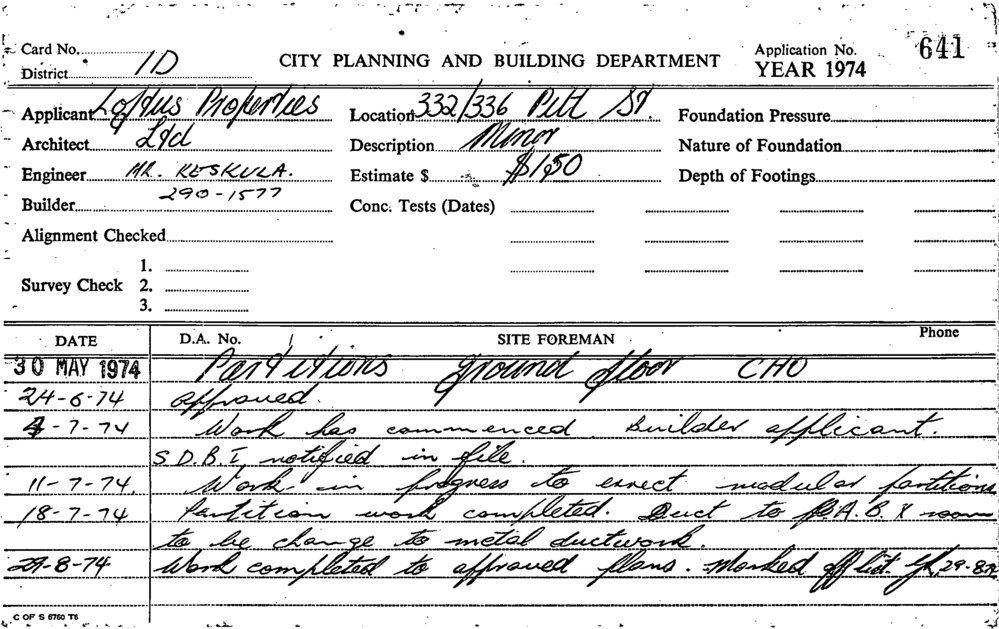 Card No. CITY PLANNING AND BUILDING DEPARTMENT Application No. 641
District 1D YEAR 1974
Applicant Loftus Properties Location 332/336 Pitt St. Foundation Pressure
Architect Ltd Description Minor Nature of Foundation
Engineer MR. KESKULA. Estimate $ $150 Depth of Footings
Builder 290-1577 Conc. Tests (Dates)
Alignment Checked
1.
Survey Check 2.
3.
DATE D.A. No. SITE FOREMAN Phone
30 MAY 1974 Partitions ground floor CHO
24-6-74 approved.
4-7-74 Work has commenced. Builder applicant.
S.D.B.I. notified in file.
11-7-74. Work in progress to errect modular partitions
18-7-74 Partition work completed. Duct to P.A.B.X room
to be change to metal ductwork.
29-8-74 Work completed to approved plans. Marked off list. 29-8-74
C OF S 6760 T6